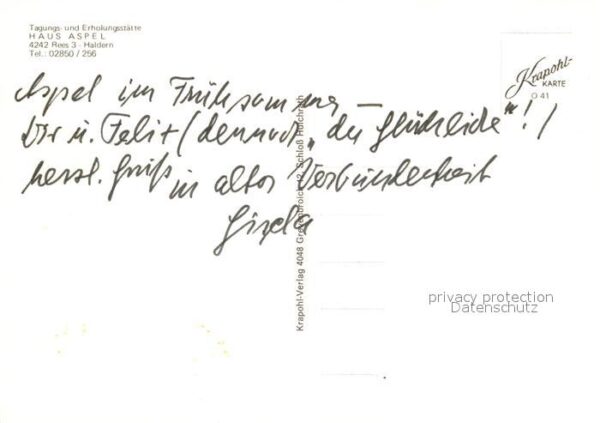 Tagungs- und Erholungsstätte
HAUS ASPEL
4242 Rees 3 - Haldern
Tel.: 02850 / 256
Krapohl-
KARTE
O 41
Aspel im Frühsommer –
Dir u. Felix (dennoch „der Glückliche"!)
herzl. Gruß in alter Verbundenheit
Gisela
Krapohl-Verlag 4048 Grevenbroich 12, Schloß Hülchrath
privacy protection
Datenschutz